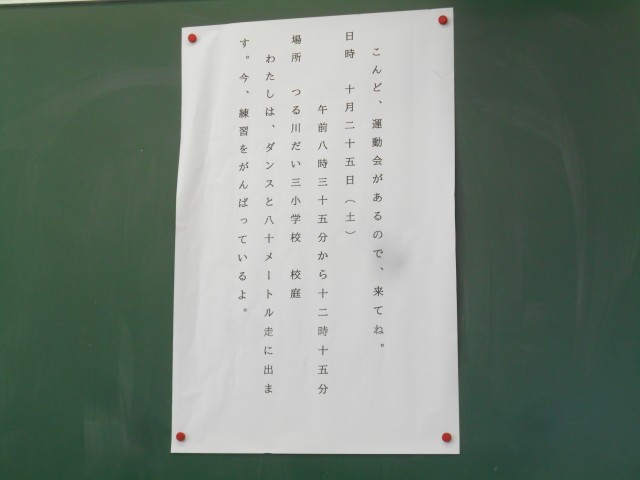 こんど、運動会があるので、来てね。
日時　十月二十五日（土）
午前八時三十五分から十二時十五分
場所　つる川だい三小学校　校庭
わたしは、ダンスと八十メートル走に出ま
す。今、練習をがんばっているよ。